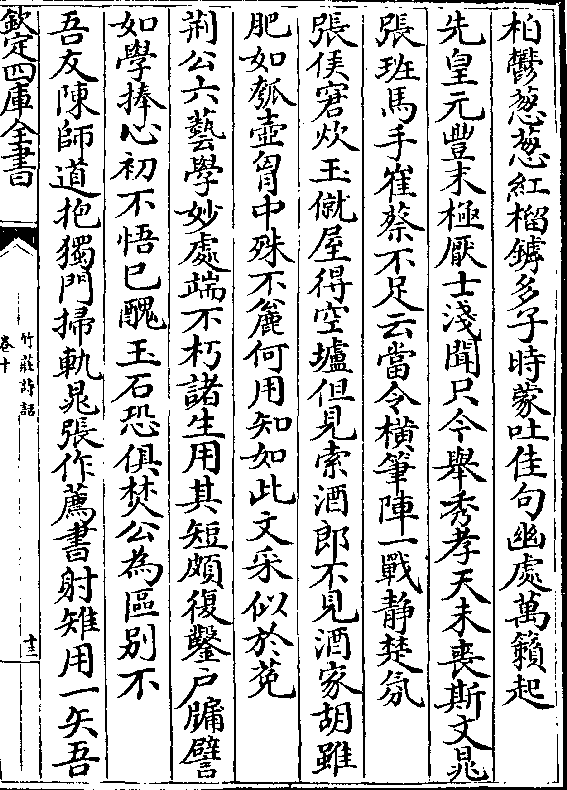 柏鬱葱葱紅榴罅多子時蒙吐佳句幽處萬籟起
先皇元豐末極厭士淺聞只今舉秀孝天未喪斯文晁
張班馬手崔蔡不足云當令橫筆陣一戰静楚氛
張侯窘炊玉僦屋得空壚但見索酒郎不見酒家胡雖
肥如瓠壺胷中殊不麄何用知如此文采似於菟
荆公六藝學妙處端不朽諸生用其短頗復鑿户牖譬
如學捧心初不悟已醜玉石恐俱焚公為區别不
吾友陳師道抱獨門掃軌晁張作薦書射雉用一矢吾
欽定四庫全書
竹莊詩話
卷十
十三